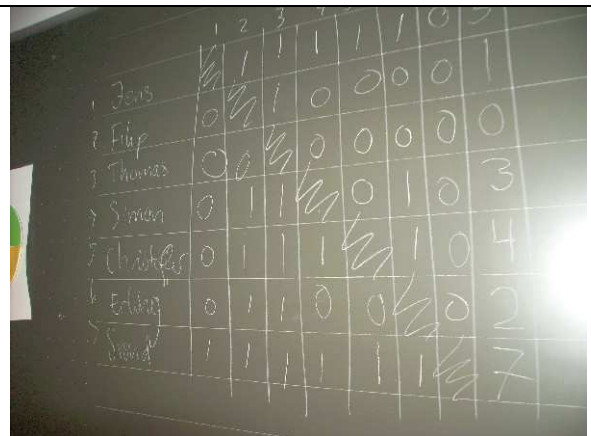 1 2 3
1 Jens 1 1 1 1 1 0 5
2 Filip 0 1 0 0 0 0 1
3 Thomas 0 0 0 0 0 0 0
Simon 0 1 1 0 1 0 3
5 Christoffer 0 1 1 1 1 0 4
0 1 1 0 0 0 2
1 1 1 1 1 1 7